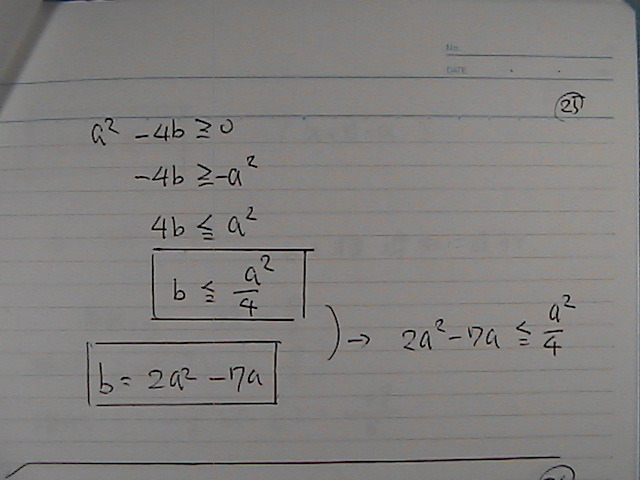 No.
DATE
25
a² - 4b ≧ 0
-4b ≧ -a²
4b ≦ a²
b ≦ a²/4
b = 2a² - 17a
) → 2a² - 17a ≦ a²/4